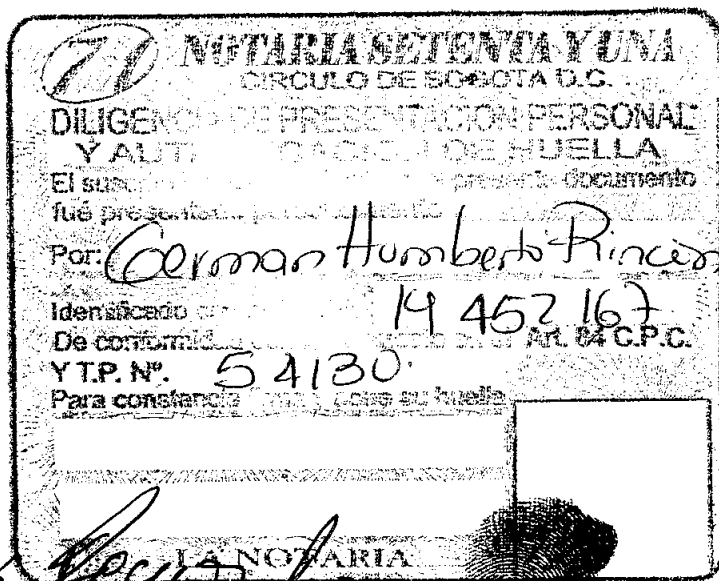 71 NOTARIA SETENTA Y UNA
CIRCULO DE BOGOTA D.C.
DILIGENCIA DE PRESENTACION PERSONAL
Y AUTENTICACION DE HUELLA
El presente documento
fué presentado personalmente
Por: German Humberto Rincon
Identificado 14 452 167
De conformidad Art. 84 C.P.C.
Y T.P. Nº. 54130.
Para constancia su huella
LA NOTARIA